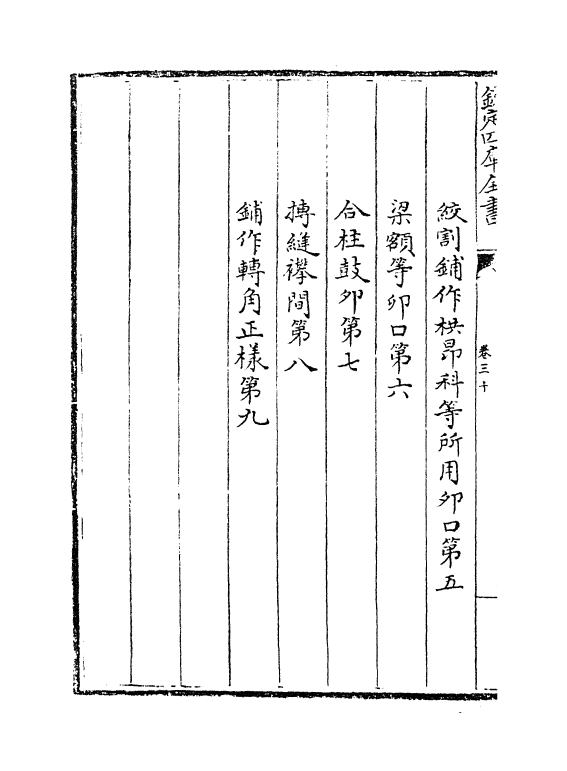 欽定四庫全書
卷三十
絞割鋪作栱昂科等所用卯口第五
梁額等卯口第六
合柱鼓卯第七
摶縫襻間第八
鋪作轉角正樣第九